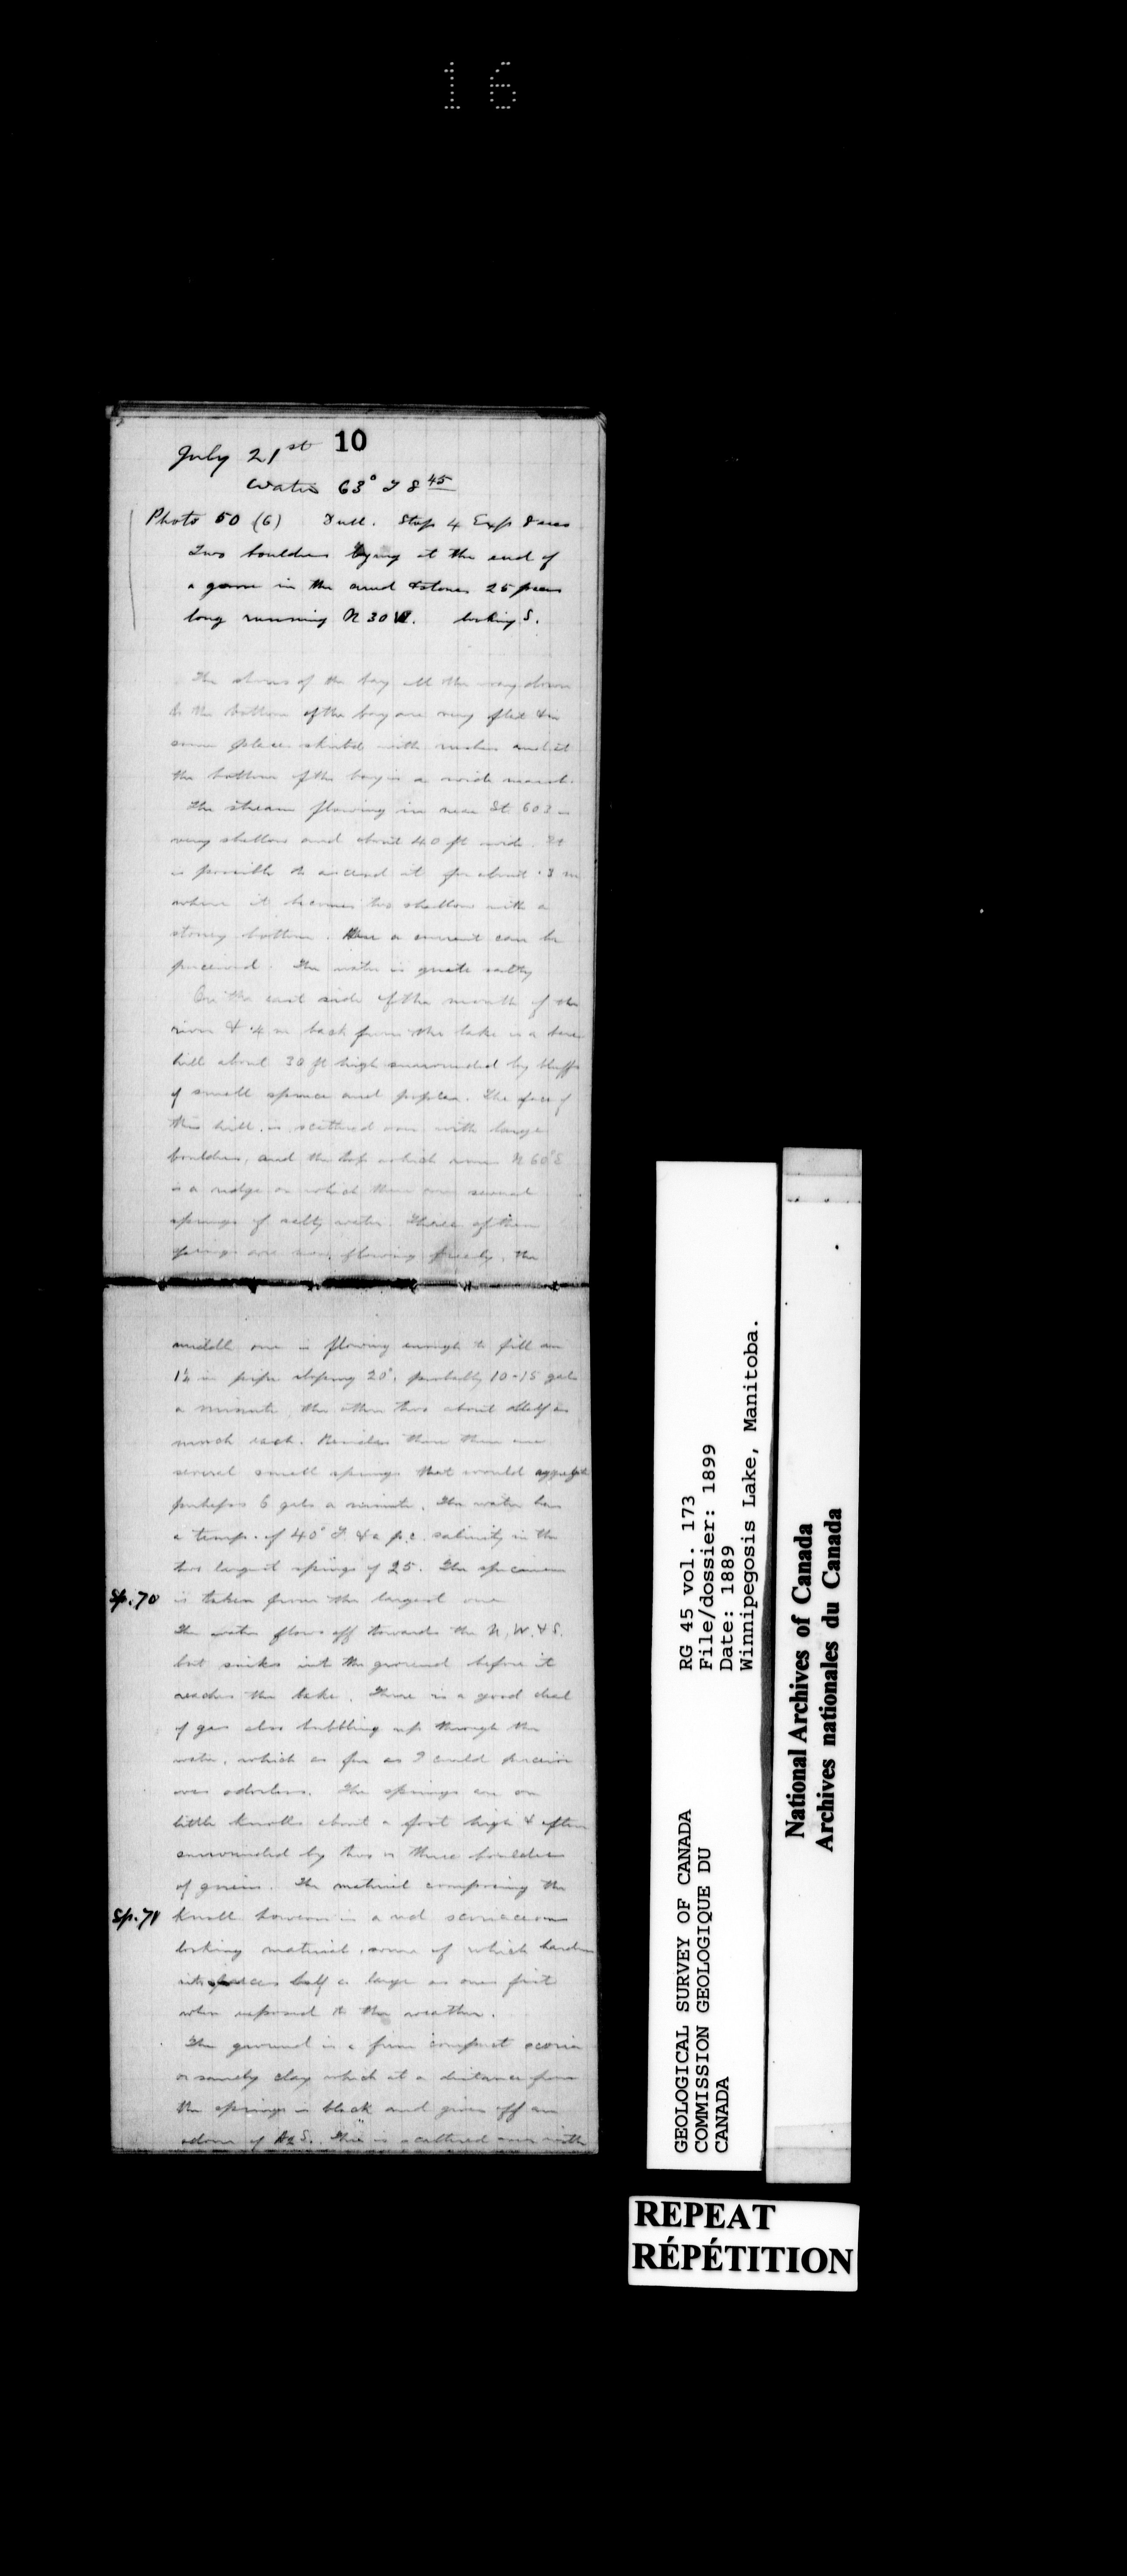 16
10
July 21st
Water 63° F 8 45
Photo 50 (6) Dull. Stop 4 Exp 8 secs
Two boulders lying at the end of
a groove in the sand & stones 25 paces
long running N 30 W. looking S.
The shores of the bay all the way down
to the bottom of the bay are very flat & in
some places skirted with rushes and at
the bottom of the bay is a wide marsh.
The stream flowing in near St. 603 is
very shallow and about 40 ft wide. It
is possible to ascend it for about .3 m
where it becomes too shallow with a
stoney bottom. Here a current can be
perceived. The water is quite salty
On the east side of the mouth of the
river & .4 m back from the lake is a bare
hill about 30 ft high surrounded by bluffs
of small spruce and poplar. The face of
this hill is scattered over with large
boulders, and the top which runs N 60° E
is a ridge on which there are several
springs of salty water. Three of these
springs are now flowing freely, the
middle one is flowing enough to fill an
1½ in pipe sloping 20°, probably 10-15 gals
a minute, the other two about half as
much each. Besides these there are
several small springs that would aggregate
perhaps 6 gals a minute. The water has
a temp. of 40° F. & a p.c. salinity in the
two largest springs of 25. The specimen
Sp. 70 is taken from the largest one
The water flows off towards the N, W. & S.
but sinks into the ground before it
reaches the lake. There is a good deal
of gas also bubbling up through the
water, which as far as I could perceive
was odorless. The springs are on
little knolls about a foot high & often
surrounded by two or three boulders
of gneiss. The material composing the
Sp. 71 knoll however is a red scoriaceous
looking material, some of which hardens
into pieces half as large as ones fist
when exposed to the weather.
The ground is a firm compact scoria
or sandy clay which at a distance from
the springs is black and gives off an
odour of H2S. This is scattered over with
GEOLOGICAL SURVEY OF CANADA
COMMISSION GEOLOGIQUE DU
CANADA
RG 45 vol. 173
File/dossier: 1899
Date: 1889
Winnipegosis Lake, Manitoba.
National Archives of Canada
Archives nationales du Canada
REPEAT
RÉPÉTITION